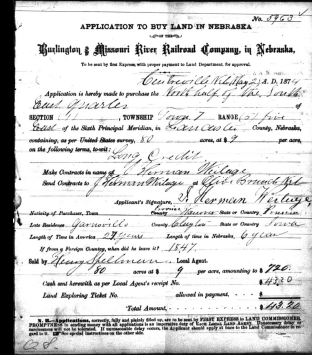 No. 5963
APPLICATION TO BUY LAND IN NEBRASKA
Burlington & Missouri River Railroad Company, in Nebraska,
To be sent by first Express, with proper payment to Land Department for approval.
Centreville A. D. 187
Application is hereby made to purchase the North half of the South
East Quarter
SECTION 11 TOWNSHIP Town 7 RANGE
East of the Sixth Principal Meridian, in Lancaster County, Nebraska,
containing, as per United States survey 80 acres, at $ 9 per acre,
on the following terms, to-wit:
Long Credit
Make Contracts in name of Herman
Send Contracts to Herman at Olive Branch
Applicant's Signature, Herman
Nativity of Purchaser, Town County State or Country Prussia
Late Residence Garnavillo County Clayton State or Country Iowa
Length of Time in America 27 years Length of Time in Nebraska, 6 year
If from a Foreign Country, when did he leave it? 1847
Sold by Henry Spellman Local Agent.
80 acres at $ 9 per acre, amounting to $ 720.
Cash sent herewith as per Local Agent's receipt No. $ 43.20
Land Exploring Ticket No. allowed in payment, $
Total Amount, $ 43.20
N. B.—Applications, correctly, fully and plainly filled up, are to be sent by FIRST EXPRESS to LAND COMMISSIONER.
PROMPTNESS in sending money with all applications is an imperative duty of EACH LOCAL LAND AGENT. Unnecessary delay or
carelessness will not be tolerated.